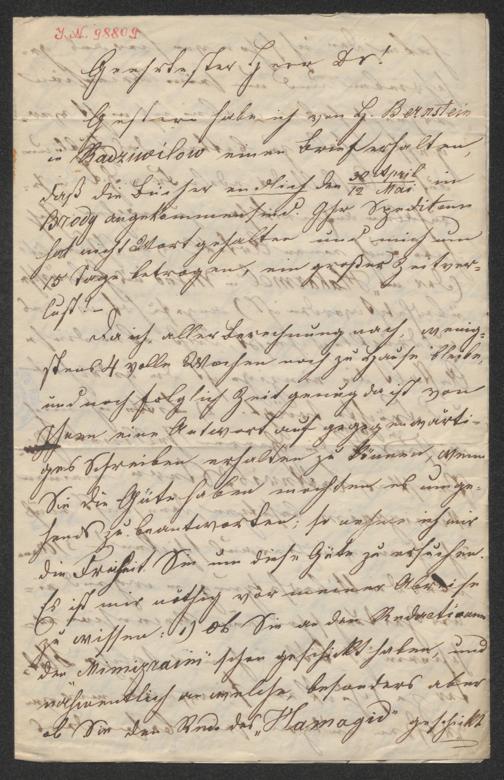 J.N. 98809
Geehrtester Herr Dr!
Gestern habe ich von H. Bernstein
in Radziwilow einen Brief erhalten,
daß die Bücher endlich den 30 April/12 Mai in
Brody angekommen sind. Ihr Spediteur
hat nicht Wort gehalten und mich um
15 Tage betrogen, ein großer Zeitver-
lust! –
Da ich aller Berechnung nach, wenig-
stens 4 volle Wochen noch zu Hause bleibe,
und noch folglich Zeit genug da ist von
Ihnen eine Antwort auf gegenwärti-
ges Schreiben erhalten zu können, wenn
Sie die Güte haben möchten es umge-
hends zu beantworten; so nehme ich mir
die Freiheit Sie um diese Güte zu ersuchen.
Es ist mir nöthig vor meiner Abreise
zu wissen: 1) Ob Sie an den Redactionen
den "Mimizraim" schon geschickt haben, und
nahmentlich an welche, besonders aber
ob Sie der Red. des "Hamagid" geschickt